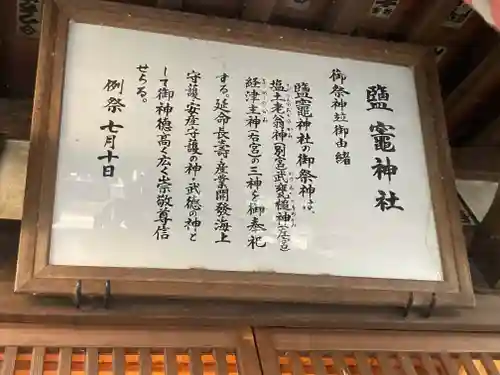 鹽竈神社
御祭神並御由緒
鹽竈神社の御祭神は、
塩土老翁神(別宮)武甕槌神(左宮)
経津主神(右宮)の三神を御奉祀
する。延命長壽・産業開發海上
守護・安産守護の神・武徳の神と
して御神徳高く広く崇敬尊信
せらる。
例祭 七月十日